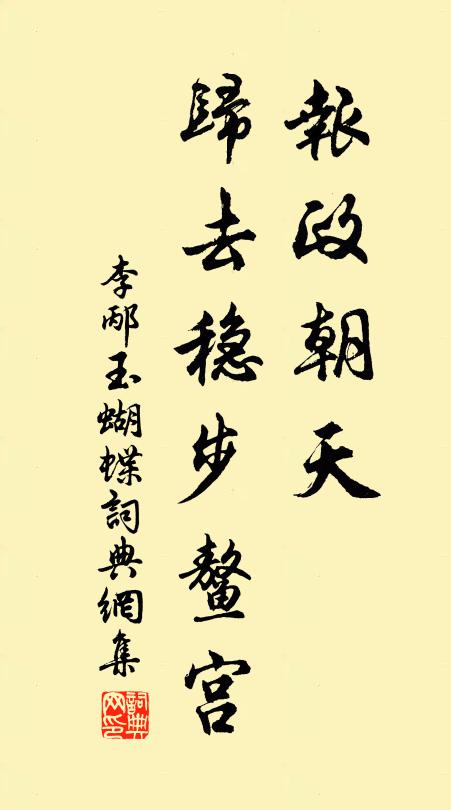 報政朝天
歸去穏步鳌宮
李邴玉蝴蝶詞典網集
詞典网印